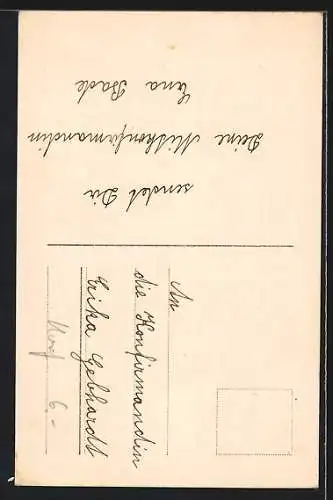 sendet Dir
Deine Mitkonfirmandin
Erna Bade
An
die Konfirmandin
Erika Gebhardt
6.-